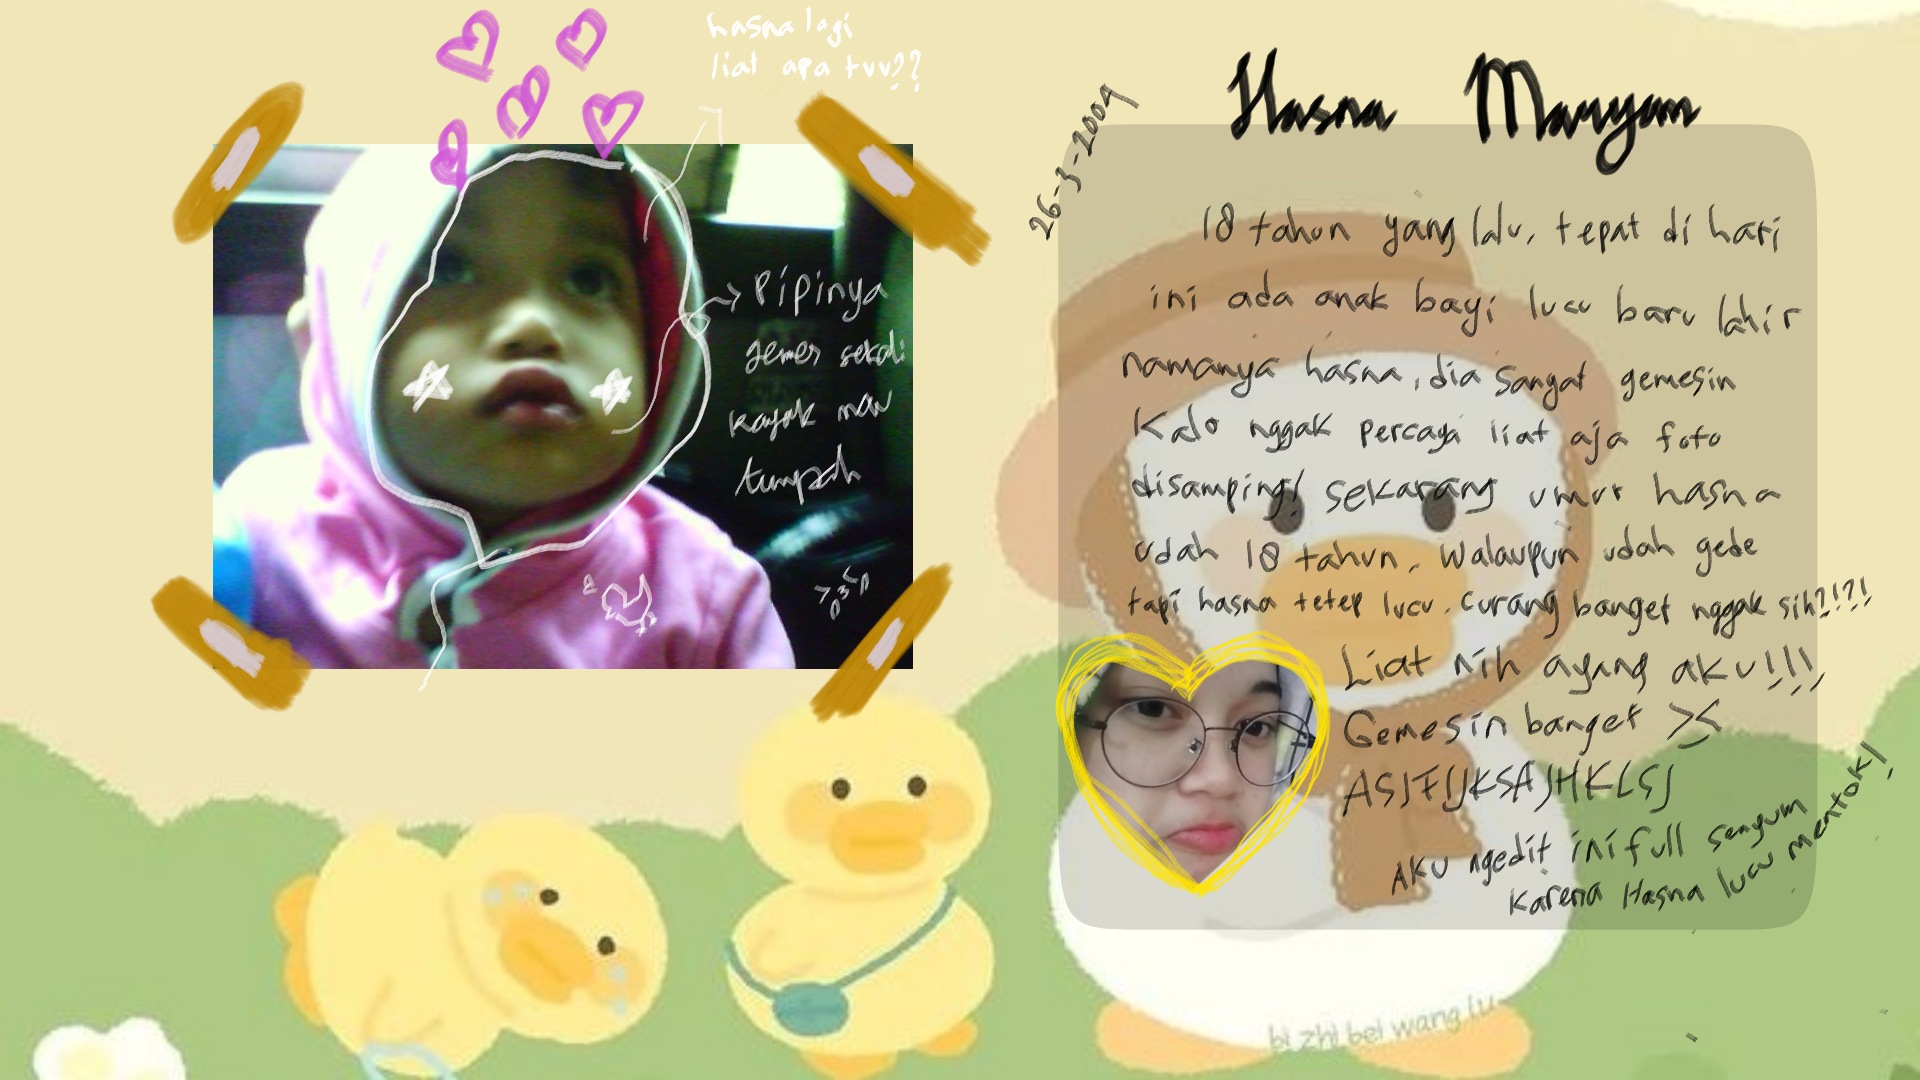 hasna lagi
liat apa tuu??
Pipinya
gemes sekali
kayak mau
tumpah
>3<
26-3-2004
Hasna Maryam
18 tahun yang lalu, tepat di hari
ini ada anak bayi lucu baru lahir
namanya hasna, dia sangat gemesin
Kalo nggak percaya liat aja foto
disamping! sekarang umur hasna
udah 18 tahun. walaupun udah gede
tapi hasna tetep lucu. curang banget nggak sih?!?!
Liat nih ayang aku!!!
Gemesin banget ><
ASJFIJKSAJHKLSJ
AKU ngedit ini full senyum
karena Hasna lucu mentok!
bi zhi bei wang lu